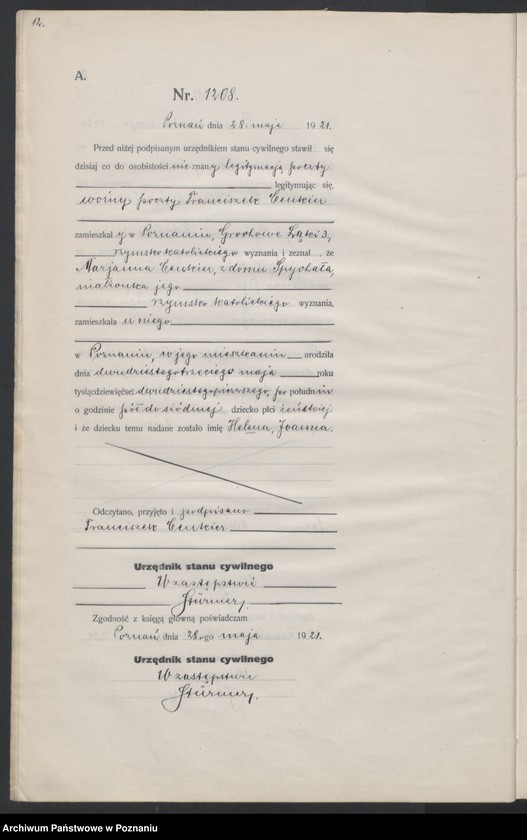 12.
A.
Nr. 1208.
Poznań dnia 28. maja 1921.
Przed niżej podpisanym urzędnikiem stanu cywilnego stawił się
dzisiaj co do osobistości nieznany legitymacją poczty
legitymując się,
woźny poczty Franciszek Centkier
zamieszkał y w Poznaniu, Grochowe Łąki 3,
rzymsko katolickiego wyznania i zeznał, że
Marjanna Centkier, z domu Spychała,
małżonka jego
rzymsko katolickiego wyznania,
zamieszkała u niego
w Poznaniu, w jego mieszkaniu urodziła
dnia dwudziestegotrzeciego maja roku
tysiącdziewięćset dwudziestegopierwszego, po południu
o godzinie pół do siódmej dziecko płci żeńskiej
i że dziecku temu nadane zostało imię Helena, Joanna.
Odczytano, przyjęto i podpisano
Franciszek Centkier
Urzędnik stanu cywilnego
W zastępstwie
Stürmer.
Zgodność z księgą główną poświadczam
Poznań dnia 28.-go maja 1921.
Urzędnik stanu cywilnego
W zastępstwie
Stürmer.
Archiwum Państwowe w Poznaniu